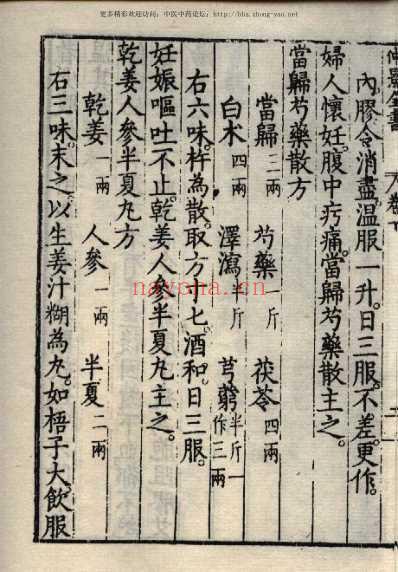 更多精彩欢迎访问：中医中药论坛：http://bbs.zhong-yao.net
內膠令消盡溫服一升日三服不差更作
婦人懷妊腹中㽲痛當歸芍藥散主之
當歸芍藥散方
當歸三兩 芍藥一斤 茯苓四兩
白朮四兩 澤瀉半斤 芎藭半斤一作三兩
右六味杵為散取方寸七酒和日三服
妊娠嘔吐不止乾姜人參半夏丸主之
乾姜人參半夏丸方
乾姜一兩 人參一兩 半夏二兩
右三味末之以生姜汁糊為丸如梧子大飲服